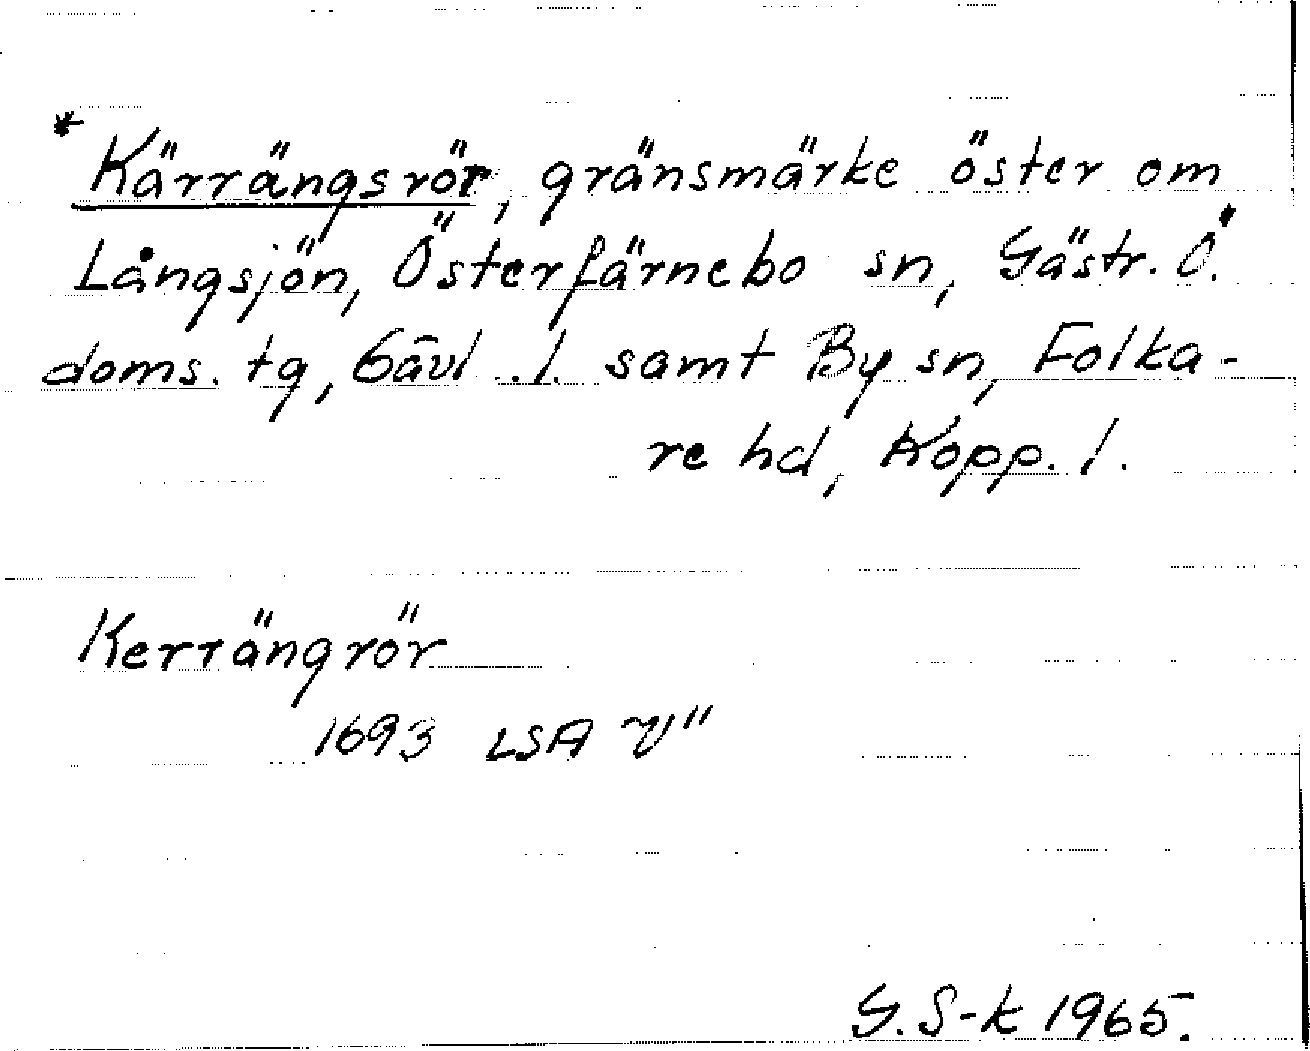 * Kärrängsrör, gränsmärke öster om
Långsjön, Österfärnebo sn, Gästr. Ö.
doms. tg, Gävl. l. samt By sn, Folka-
re hd, Kopp. l.
Kerrängrör
1693 LSA V"
G. S-k 1965.